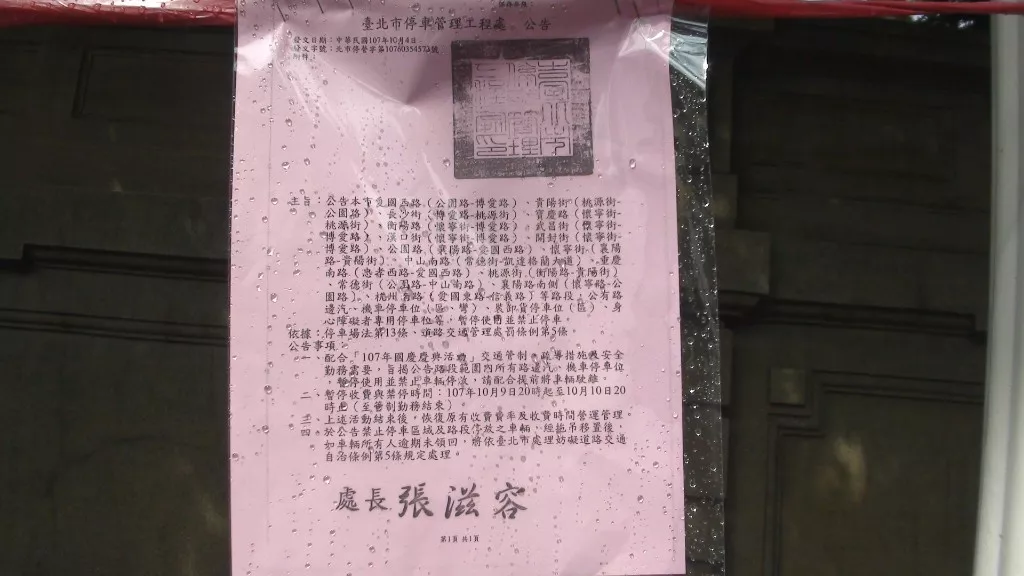 臺北市停車管理工程處 公告
發文日期：中華民國107年10月4日
發文字號：北市停營字第10760354573號
附件：
主旨：公告本市愛國西路(公園路-博愛路)、貴陽街(桃源街-
公園路)、長沙街(博愛路-桃源街)、寶慶路(懷寧街-
桃源街)、衡陽路(懷寧街-博愛路)、武昌街(懷寧街-
博愛路)、漢口街(懷寧街-博愛路)、開封街(懷寧街-
博愛路)、公園路(襄陽路-愛國西路)、懷寧街(襄陽
路-貴陽街)、中山南路(常德街-凱達格蘭大道)、重慶
南路(忠孝西路-愛國西路)、桃源街(衡陽路-貴陽街)
、常德街(公園路-中山南路)、襄陽路南側(懷寧路-公
園路)、杭州南路(愛國東路-信義路)等路段，公有路
邊汽、機車停車位(區、彎)、裝卸貨停車位(區)、身
心障礙者專用停車位等，暫停使用並禁止停車。
依據：停車場法第13條、道路交通管理處罰條例第5條。
公告事項：
一、配合「107年國慶慶典活動」交通管制、疏導措施及安全
勤務需要，旨揭公告路段範圍內所有路邊汽、機車停車位，
暫停使用並禁止車輛停放，請配合提前將車輛駛離。
二、暫停收費與禁停時間：107年10月9日20時起至10月10日20
時止(至管制勤務結束)。
三、上述活動結束後，恢復原有收費費率及收費時間營運管理。
四、於公告禁止停車區域及路段停放之車輛，經拖吊移置後，
如車輛所有人逾期未領回，將依臺北市處理妨礙道路交通
自治條例第5條規定處理。
處長 張滋容
第1頁 共1頁